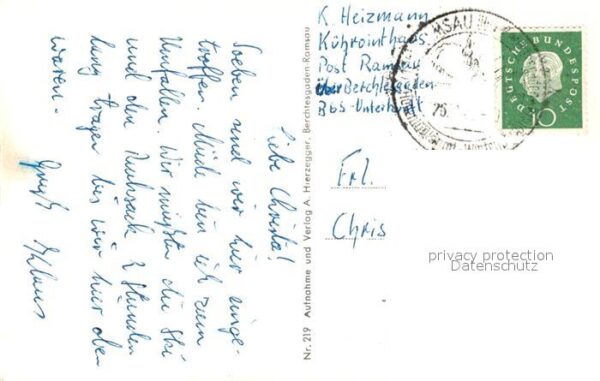 Liebe Christa!
Soeben sind wir hier einge-
troffen. Müde bin ich zum
Umfallen. Wir mußten die Ski
und den Rucksack 2 Stunden
lang tragen bis wir hier oben
waren.
Gruß Klaus
Nr. 219 Aufnahme und Verlag A. Hierzegger, Berchtesgaden-Ramsau
K. Heizmann
Kührointhaus
Post Ramsau
über Berchtesgaden
Bbs-Unterkunft
MSAU
DEUTSCHE BUNDESPOST
10
Frl.
Chris
privacy protection
Datenschutz